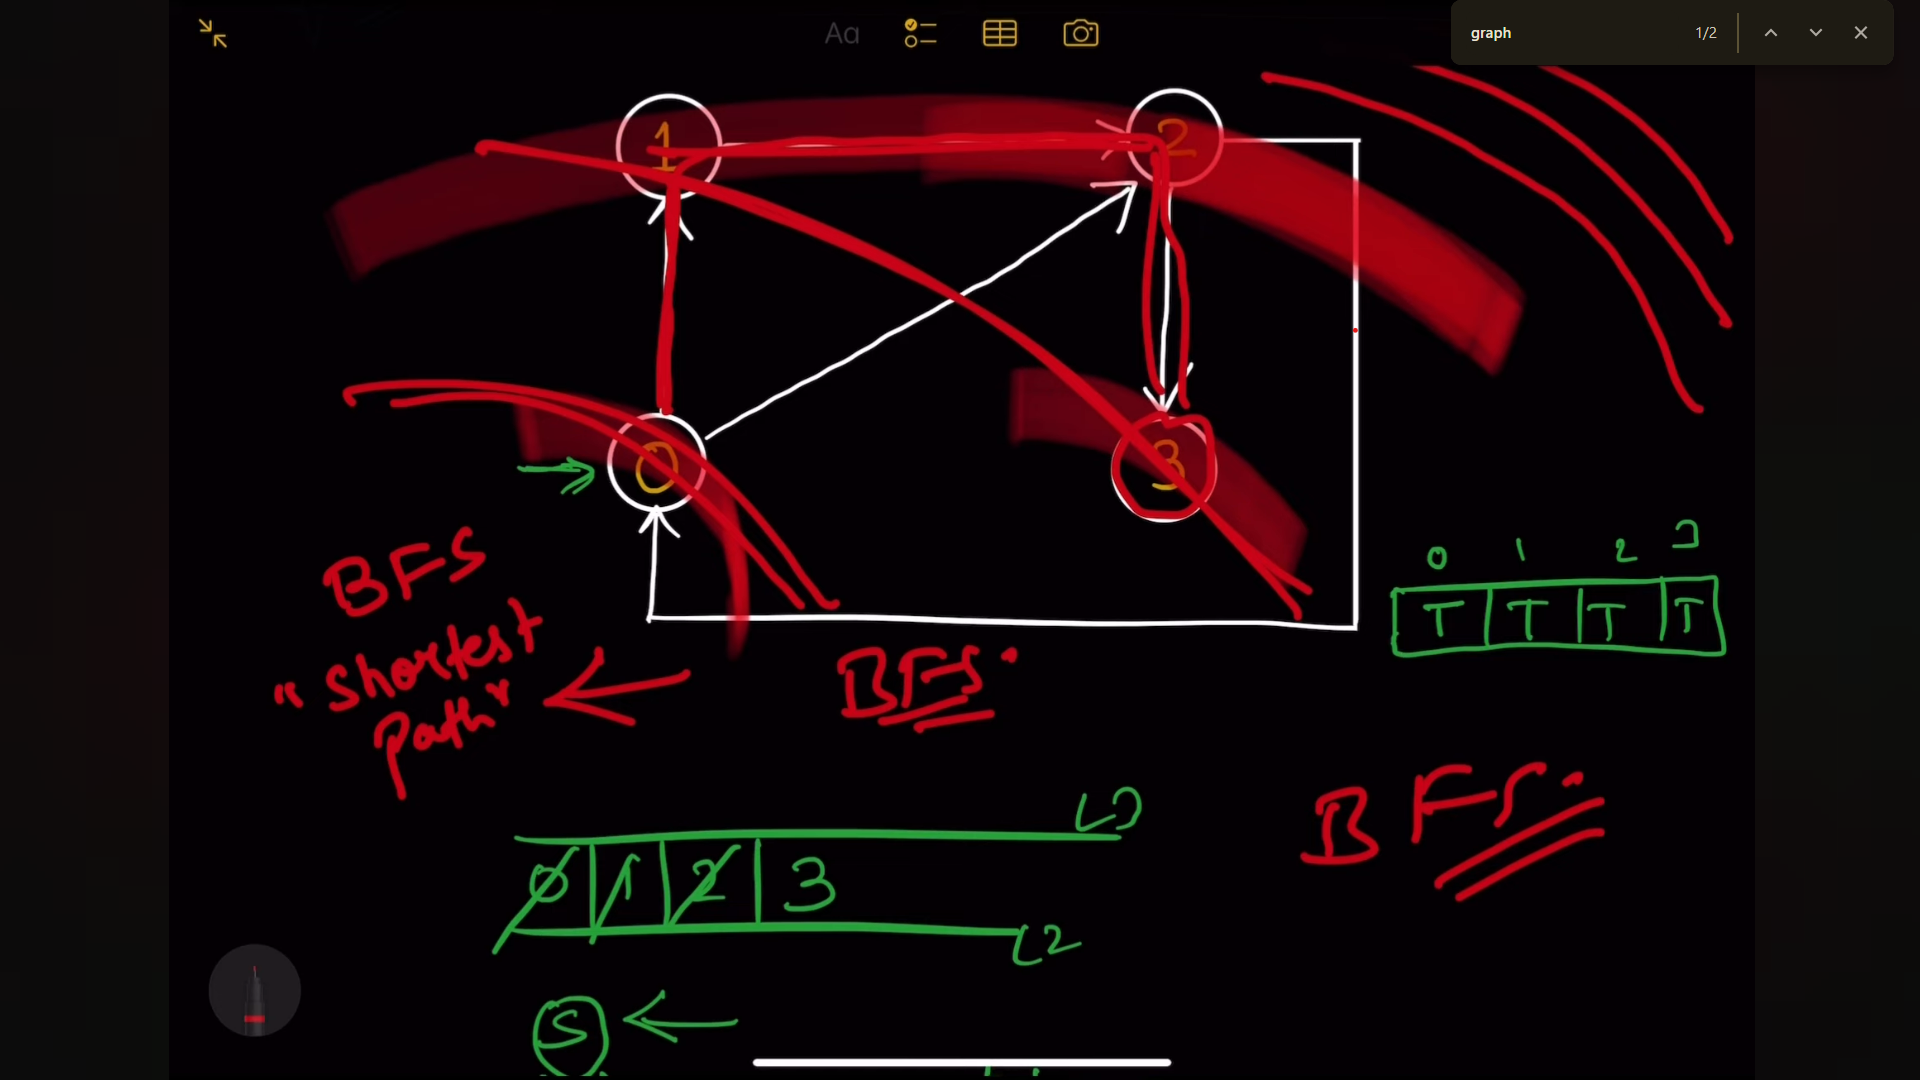 Aa
graph 1/2
1 2
0 3
BFS
"Shortest
Path"
BFS.
0 1 2 3
T T T T
BFS.
0 1 2 3
S